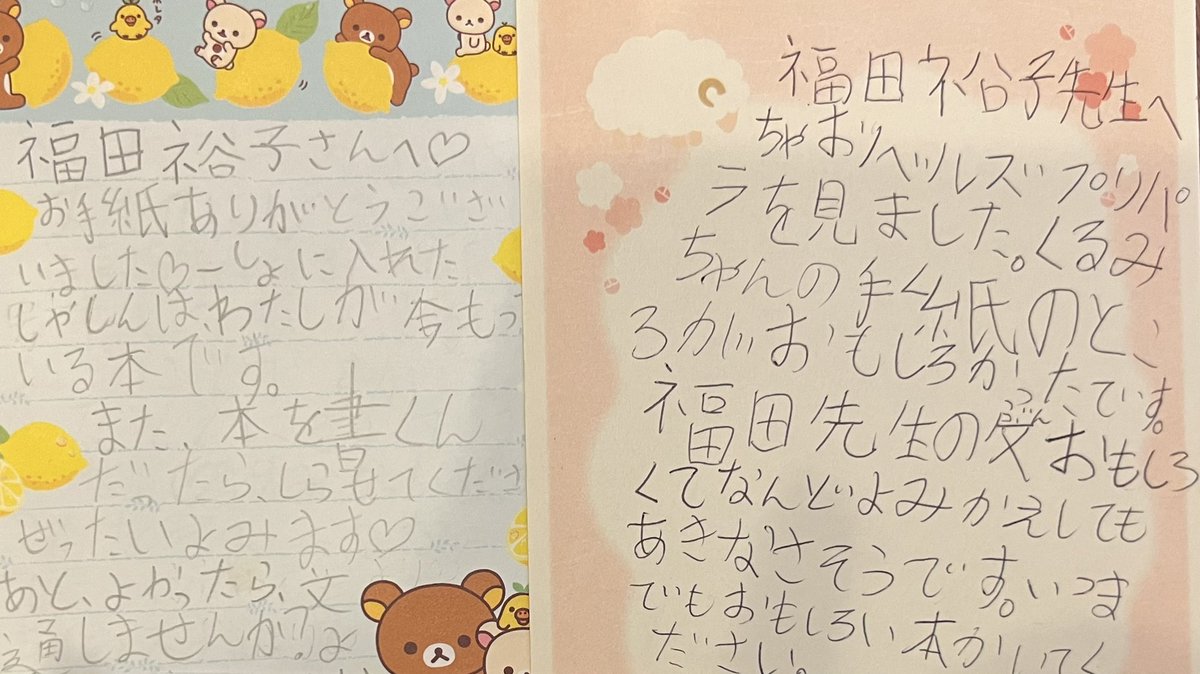 福田裕子さんへ♡
お手紙ありがとうござ
いました♡一しょに入れた
しゃしんは、わたしが今もっ
いる本です。
また、本を書くん
だったら、しら せてくださ
ぜったいよみます♡
あと、よかったら、文
通しませんか?
福田裕子先生へ
ちゃおりヘツルズプリパ
ラを見ました。くるみ
ちゃんの手紙のとこ
ろがおもしろかったです。
福田先生の おもしろ
くてなんどよみかえしても
あきなさそうです。いつま
でもおもしろい本かいてく
ださい。